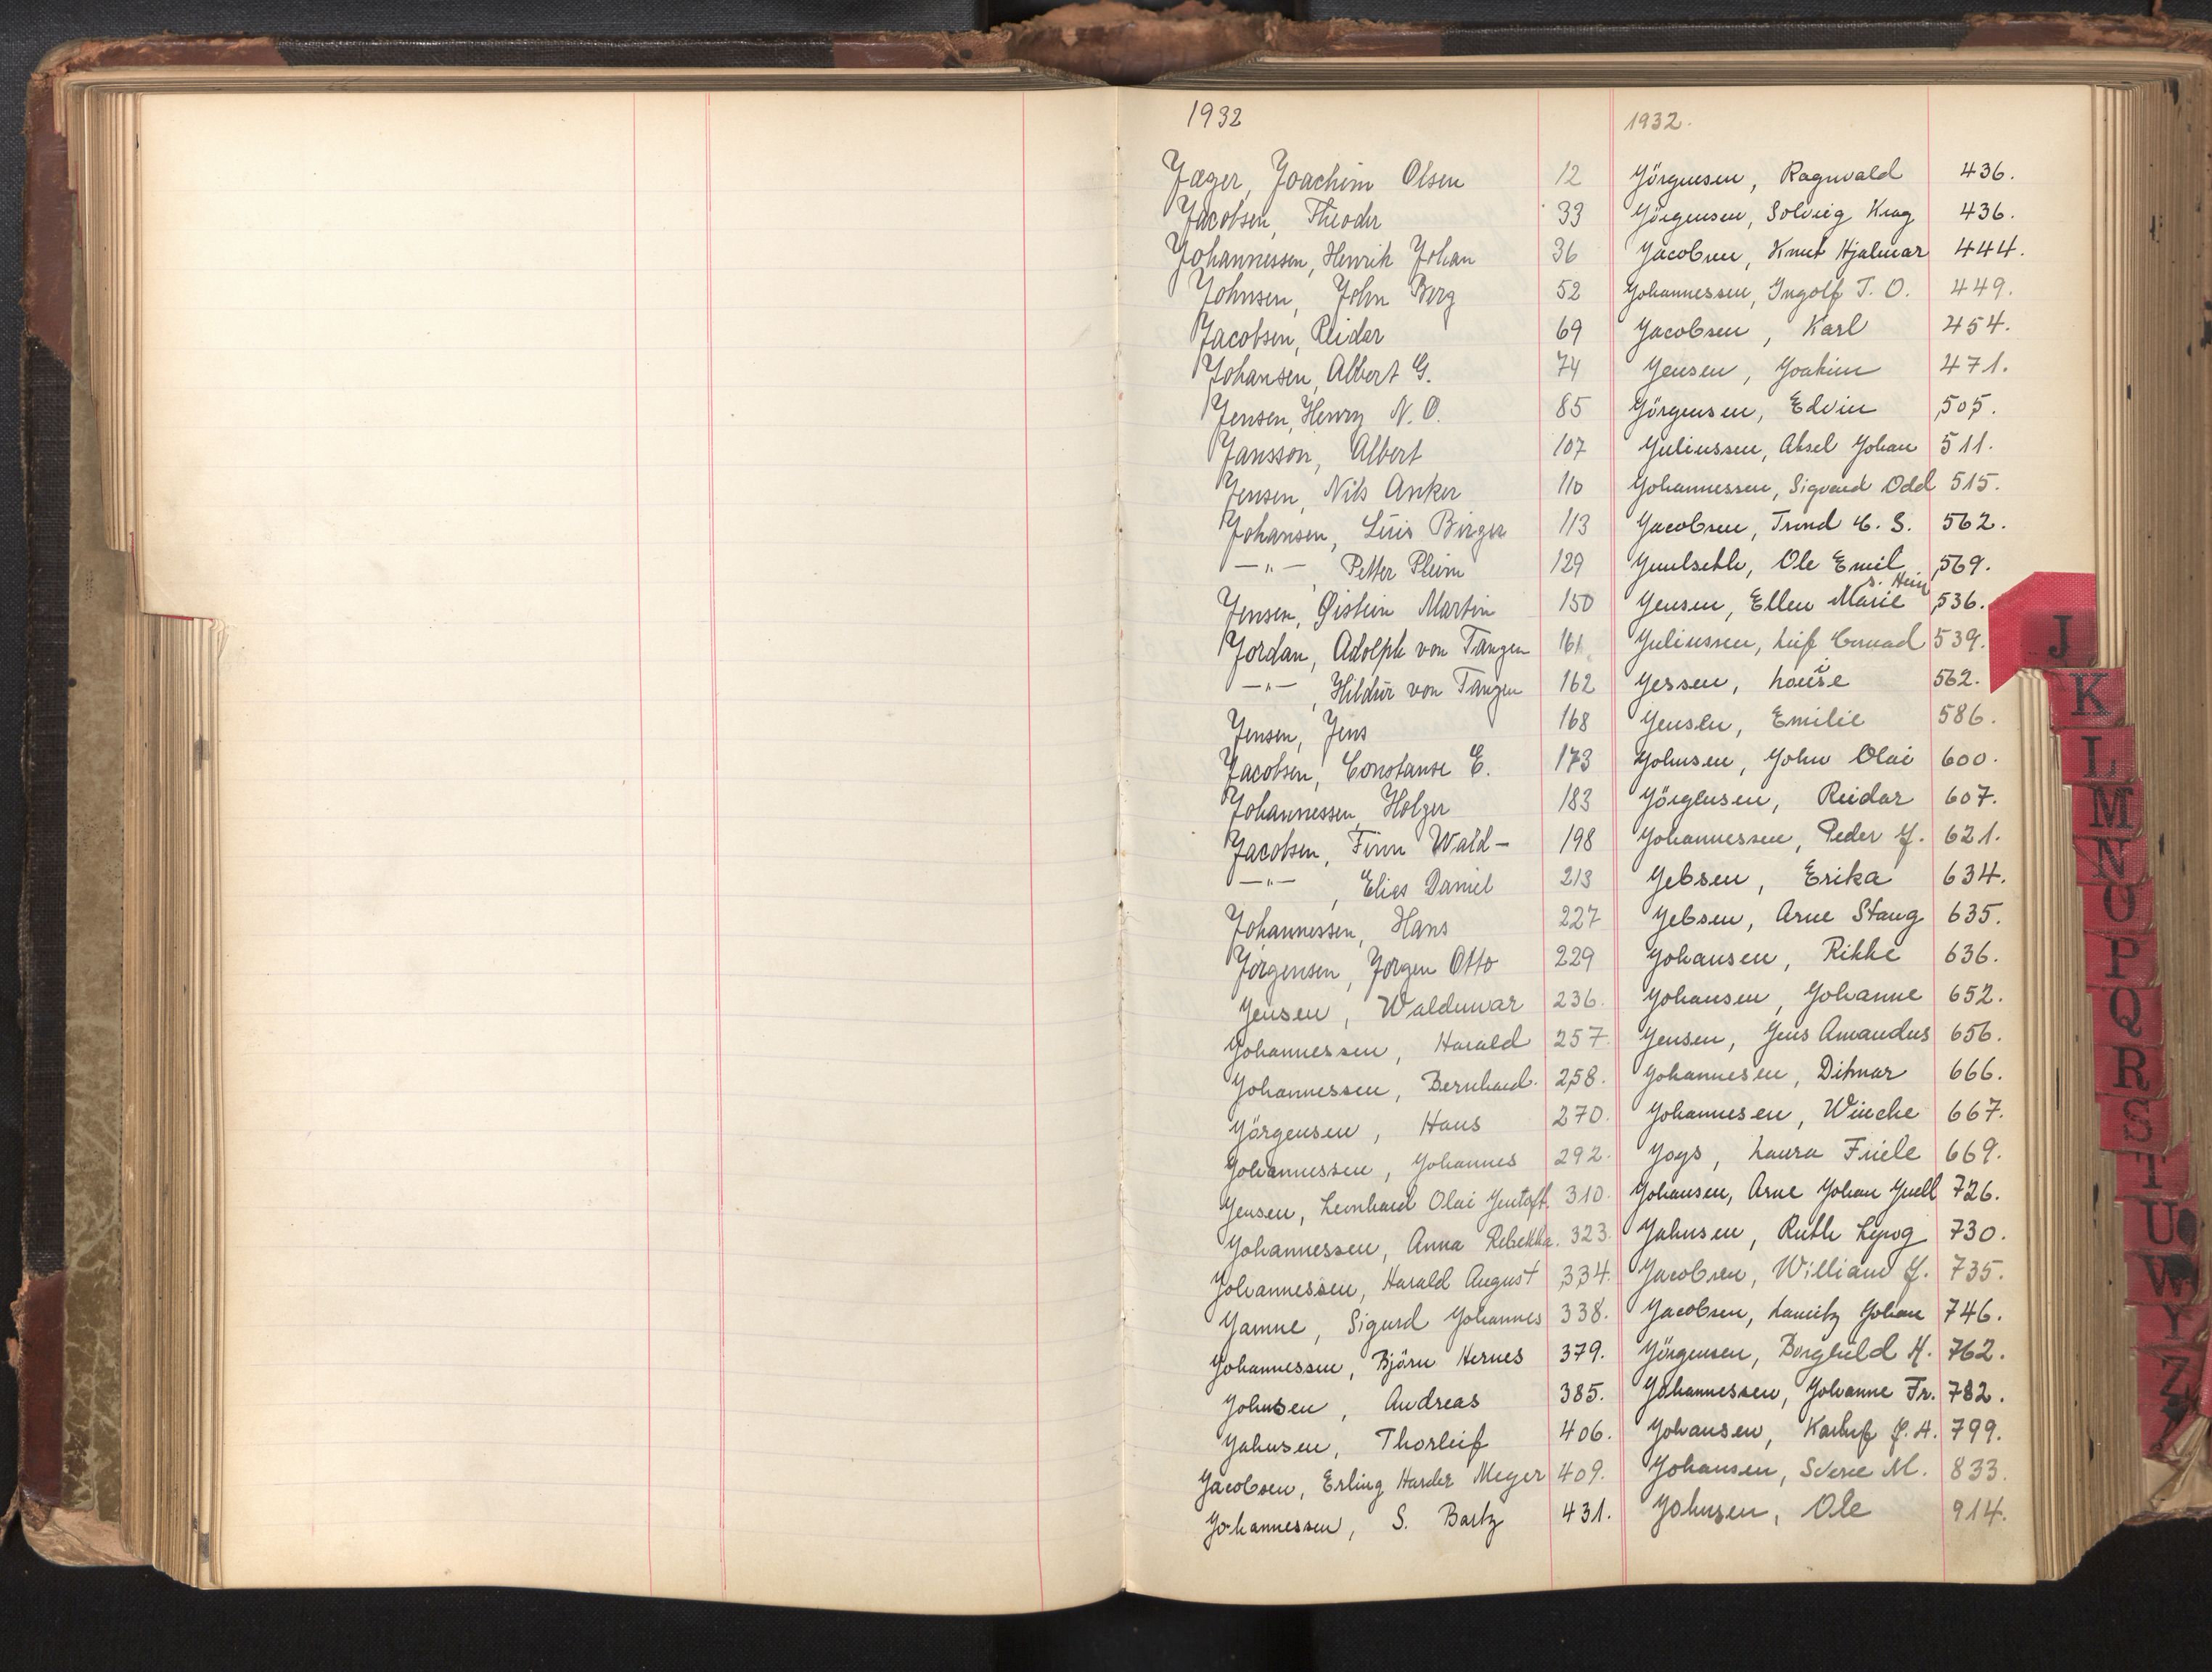 1932
Jæger, Joachim Olsen 12
Jacobsen, Theodor 33
Johannessen, Henrik Johan 36
Johnsen, John Berg 52
Jacobsen, Reidar 69
Johansen, Albert G. 74
Jensen, Henry N. O. 85
Jansson, Albert 107
Jensen, Nils Anker 110
Johansen, Luis Birger 113
—"— , Petter Pleim 129
Jensen, Øistein Martin 150
Jordan, Adolph von Tangen 161
—"— , Hildur von Tangen 162
Jensen, Jens 168
Jacobsen, Constanse E. 173
Johannessen, Holger 183
Jacobsen, Finn Wald- 198
—"— , Elias Daniel 213
Johannessen, Hans 227
Jørgensen, Jørgen Otto 229
Jensen, Waldemar 236.
Johannessen, Harald 257.
Johannessen, Bernhard. 258.
Jörgensen, Hans 270.
Johannessen, Johannes 292.
Jensen, Leonhard Olai 310.
Johannessen, Anna Rebekka. 323.
Johannessen, Harald August 334.
Jamne, Sigurd Johannes 338.
Johannessen, Björn Hernes 379.
Johnsen, Andreas 385.
Jahnsen, Thorleif 406.
Jacobsen, Erling Harder Meyer 409.
Johannessen, S. Bartz 431.
1932.
Jörgensen, Ragnvald 436.
Jörgensen, Solveig Krag 436.
Jacobsen, Knut Hjalmar 444.
Johannessen, Ingolf T. O. 449.
Jacobsen, Karl 454.
Jensen, Joakim 471.
Jörgensen, Edvin 505.
Juliussen, Aksel Johan 511.
Johannessen, Sigvard Odd 515.
Jacobsen, Trond C. S. 562.
Ole Emil 569.
s. Hein
Jensen, Ellen Marie 536.
Juliussen, Leif Conrad 539.
Jessen, Louise 562.
Jensen, Emilie 586.
Johnsen, John Olai 600.
Jörgensen, Reidar 607.
Johannessen, Peder J. 621.
Jebsen, Erika 634.
Jebsen, Arne Stang 635.
Johansen, Rikke 636.
Johansen, Johanne 652.
Jensen, Jens Amandus 656.
Johannesen, Ditmar 666.
Johannesen, Wincke 667.
Joys, Laura Friele 669.
Johansen, Arne Johan Juell 726.
Jahnsen, Ruth 730.
Jacobsen, William J. 735.
Jacobsen, Lauritz Johan 746.
Jörgensen, Borghild H. 762.
Johannessen, Johanne Fr. 782.
Johansen, J. A. 799.
Johansen, Sverre M. 833.
Johnsen, Ole 914.
J
K
L
M
N
O
P
Q
R
S
T
U
W
Y
Z